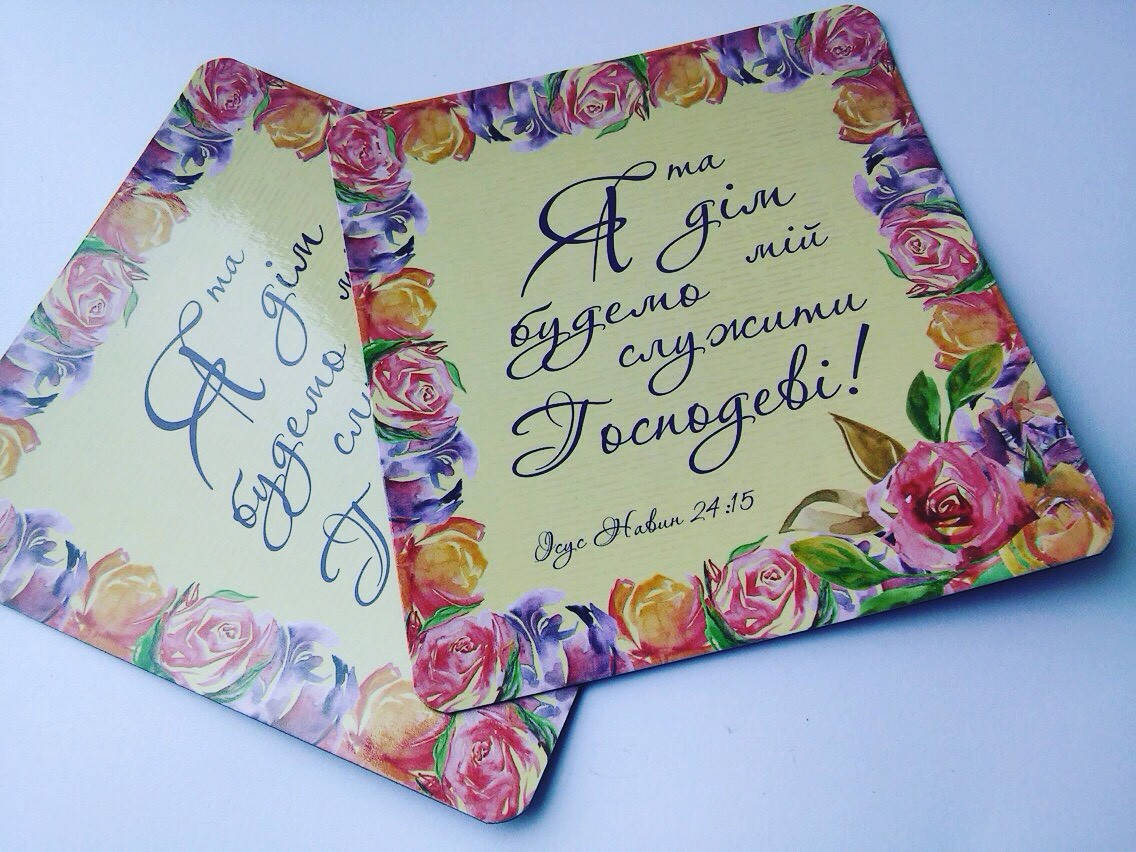 Я та
дім
мій
будемо
служити
Господеві!
Ісус Навин 24:15
Я та
дім
будемо